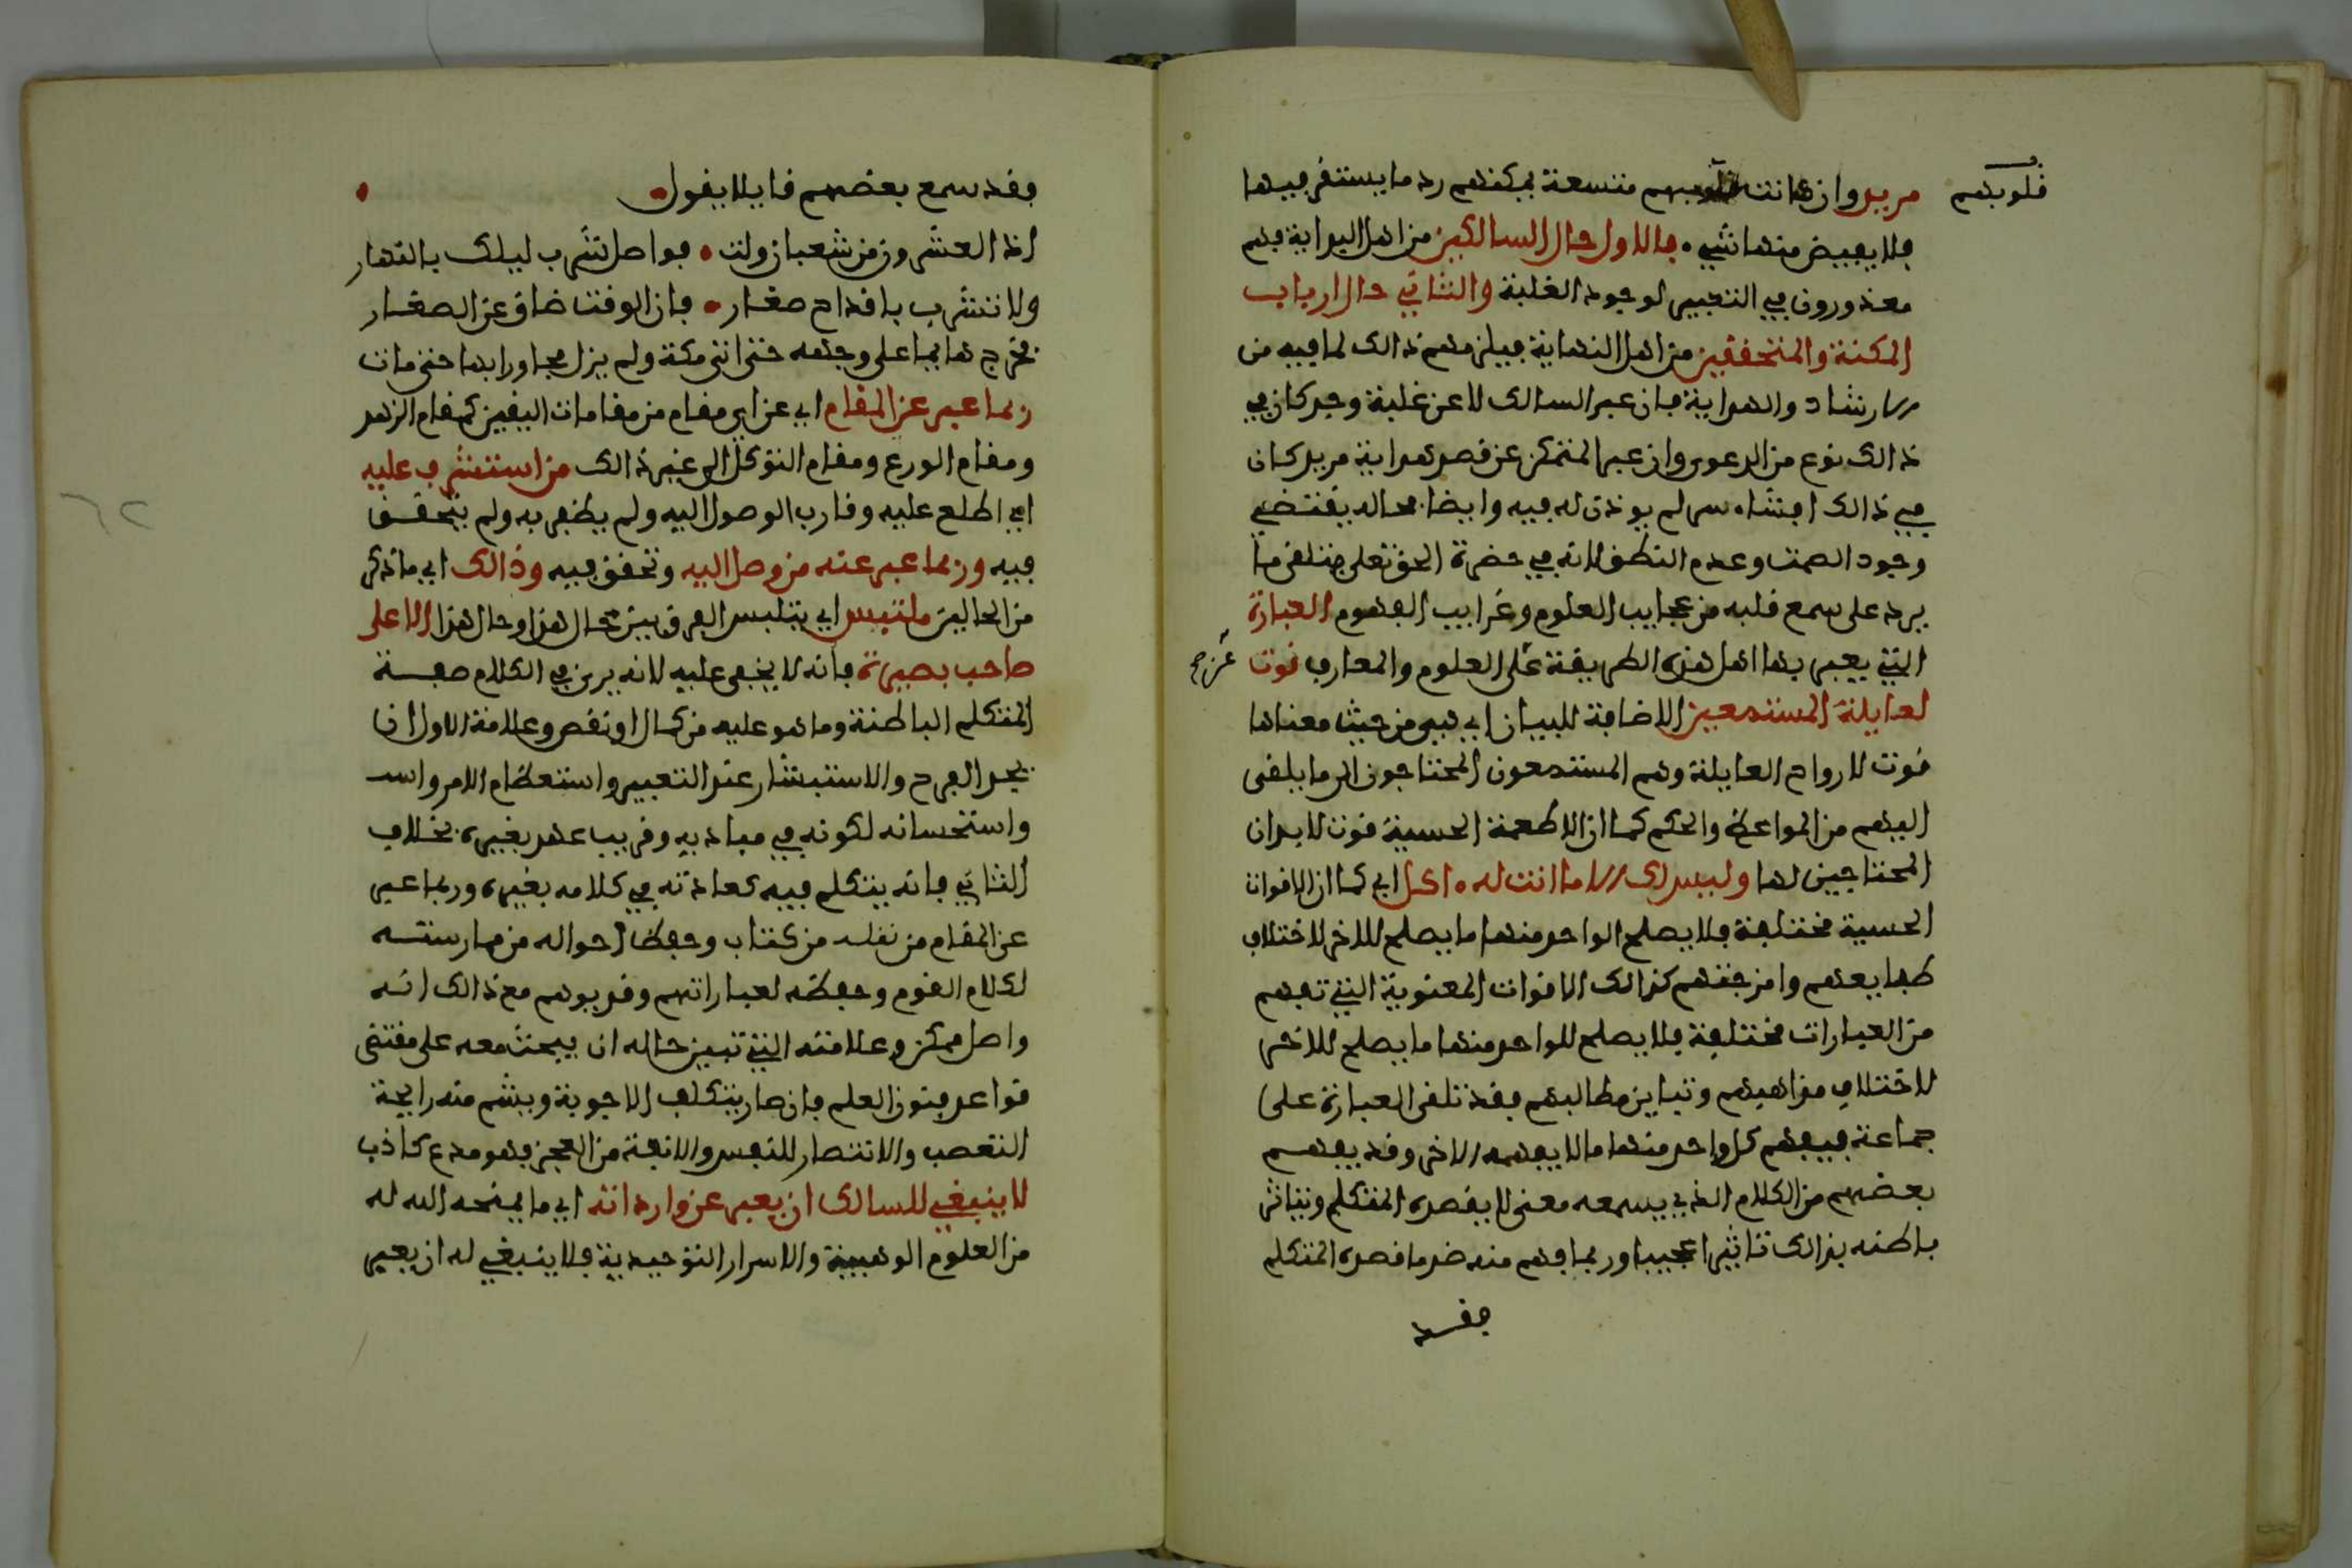 قلوبهم
مريد وان كانت قلوبهم متسعة يمكنهم رد ما يستقر فيها
فلا يفيض منها شيء • فالاول حال السالكين من اهل البداية فهم
معذورون في التعبير لوجود الغلبة والثاني حال ارباب
المكنة والمتحققين من اهل النهاية فيلزمهم ذالك لما فيه من
الارشاد والهداية فان عبر السالك لا عن غلبة وجد كان في
ذالك نوع من الدعوى وان عبر المتمكن عن قصد هداية مريد كان
في ذالك افشاء سر لم يوذن له فيه وايضا محاله يقتضي
وجود الصمت وعدم النطق لانه في حضرة الحق تعلى متلقى ما
يرد على سمع قلبه من عجايب العلوم وغرايب الفهوم العبارة
التي يعبر بها اهل هذه الطريقة على العلوم والمعارف قوت
عن صح
لعايلة المستمعين الاضافة للبيان اي هي من حيث معناها
قوت لارواح العايلة وهم المستمعون المحتاجون الى ما يلقى
اليهم من المواعظ والحكم كما ان الاطعمة الحسية قوت لابدان
المحتاجين لها وليس لك الا ما انت له • اكل اي كما ان الاقوات
الحسية مختلفة فلا يصلح الواحد منها ما يصلح للاخر لاختلاف
طبايعهم وامزجتهم كذالك الاقوات المعنوية التي تفهم
من العبارات مختلفة فلا يصلح للواحد منها ما يصلح للاخر
لاختلاف مذاهبهم وتباين مطالبهم فقد تلقى العبارة على
جماعة فيفهم كل واحد منها ما لا يفهمه الاخر وقد يفهم
بعضهم من الكلام الذي يسمعه معنى لا يقصده المتكلم ويتاثر
باطنه بذالك تاثيرا عجيبا وربما فهم منه ضد ما قصده المتكلم
فقد
فقد سمع بعضهم قايلا يقول •
اذا العشرون من شعبان ولت • فواصل شرب ليلك بالنهار
ولا تشرب باقداح صغار • فان الوقت ضاق عن الصغار
فخرج هايما على وجهه حتى اتى مكة ولم يزل مجاورا بها حتى مات
ربما عبر عن المقام اي عن اي مقام من مقامات اليقين كمقام الزهد
ومقام الورع ومقام التوكل الى غير ذالك من استشرف عليه
اي اطلع عليه وقارب الوصول اليه ولم يظفر به ولم يتحقق
فيه وربما عبر عنه من وصل اليه وتحقق فيه وذالك اي ما ذكر
من الحالين ملتبس اي يتلبس الفرق بين حال هذا وحال هذا الا على
صاحب بصيرة فانه لا يخفى عليه لانه يرى في الكلام صفة
المتكلم الباطنة وما هو عليه من كمال او نقص وعلامة الاول ان
يجد الفرح والاستبشار عند التعبير واستعظام الامر واسـ
واستحسانه لكونه في مباديه وقريب عهد بغيره بخلاف
الثاني فانه يتكلم فيه كعادته في كلامه بغيره وربما عبر
عن المقام من نقله من كتاب وحفظ احواله من ممارسته
لكلام القوم وحفظه لعباراتهم وقد يوهم مع ذالك انه
واصل متمكن وعلامته التي تبين حاله ان يبحث معه على مقتضى
قواعد فنون العلم فان صار يتكلف الاجوبة ويشم منه رايحة
التعصب والانتصار للنفس والانفة من العجز فهو مدع كاذب
لا ينبغي للسالك ان يعبر عن وارداته اي ما يمنحه الله له
من العلوم الوهبية والاسرار التوحيدية فلا ينبغي له ان يعبر
٦٢